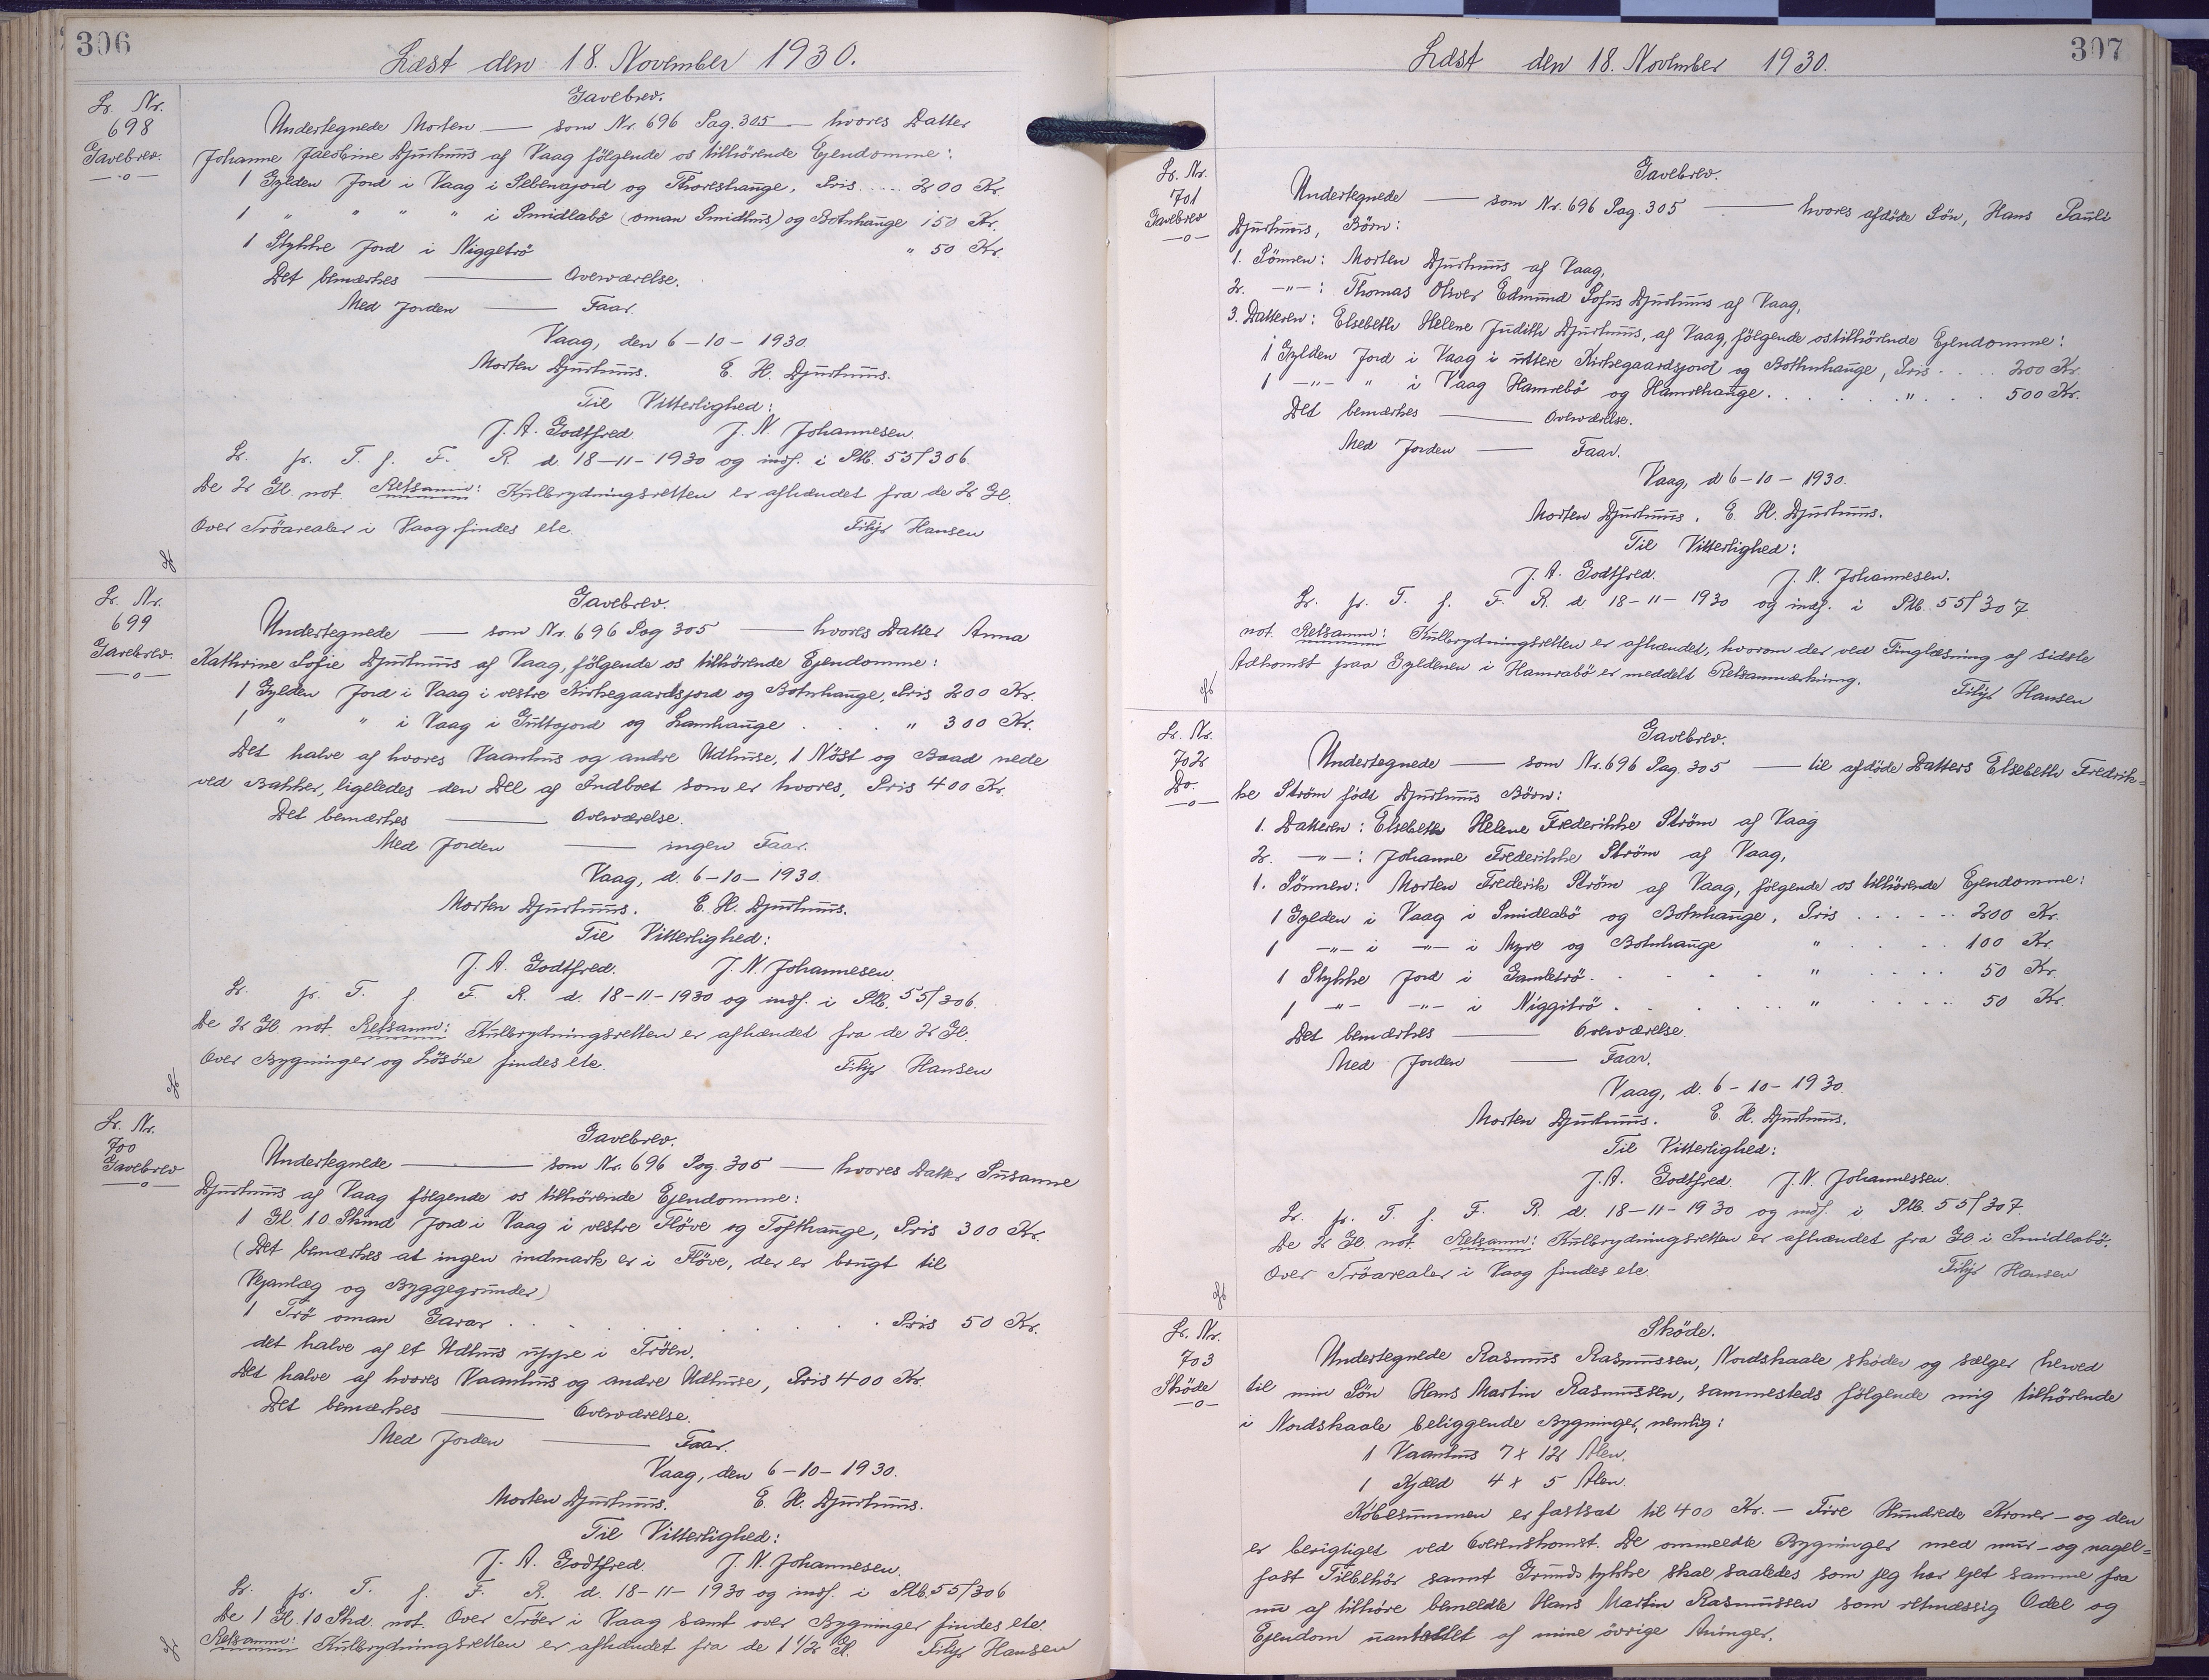 306
Læst den 18. November 1930.
Lr. Nr.
698
Gavebrev.
Gavebrev.
Undertegnede Morten — som Nr. 696 Pag. 305 — hvores Datter
Johanne Jacobine Djurhuus af Vaag følgende os tilhörende Ejendomme:
1 Gylden Jord i Vaag i Sebenajord og Thoreshauge, Pris .... 200 Kr.
1 " " " " i Smidlabö (oman Smidhus) og Botnhauge 150 Kr.
1 Stykke Jord i Niggetrö " 50 Kr.
Det bemærkes — Overværelse.
Med Jorden — Faar.
Vaag, den 6-10-1930
Morten Djurhuus. E. H. Djurhuus.
Til Vitterlighed:
J. A. Godtfred. J. N. Johannesen.
Lr. pr. T. f. F. R. d. 18-11-1930 og indf. i Ptb. 55/306.
De 2 Gl. not. Retsanm: Kulbrydningsretten er afhændet fra de 2 Gl.
Over Tröarealer i Vaag findes ete. Filip Hansen
Lr. Nr.
699
Gavebrev.
Gavebrev.
Undertegnede — som Nr. 696 Pag 305 — hvores Datter Anna
Kathrine Sofie Djurhuus af Vaag, følgende os tilhörende Ejendomme:
1 Gylden Jord i Vaag i vestre Kirkegaardsjord og Botnhauge, Pris 200 Kr.
1 " " i Vaag i Gultojord og Lamhauge . . . " 300 Kr.
Det halve af hvores Vaanhus og andre Udhuse, 1 Nöst og Baad nede
ved Bakker, ligeledes den Del af Indboet som er hvores, Pris 400 Kr.
Det bemærkes — Overværelse.
Med Jorden — ingen Faar.
Vaag, d. 6-10-1930.
Morten Djurhuus. E. H. Djurhuus.
Til Vitterlighed:
J. A. Godtfred. J. N. Johannesen.
Lr. pr. T. f. F. R. d. 18-11-1930 og indf. i Ptb. 55/306.
De 2 Gl. not. Retsanm: Kulbrydningsretten er afhændet fra de 2 Gl.
Over Bygninger og Lösöre findes ete. Filip Hansen
Lr. Nr.
700
Gavebrev
Gavebrev.
Undertegnede — som Nr. 696 Pag. 305 — hvores Datter Susanne
Djurhuus af Vaag følgende os tilhörende Ejendomme:
1 Gl. 10 Skind Jord i Vaag i vestre Flöve og Tofthauge, Pris 300 Kr.
(Det bemærkes at ingen indmark er i Flöve, der er brugt til
Vejanlæg og Byggegrunder)
1 Trö oman Garar . . . . . . Pris 50 Kr.
det halve af et Udhus uppe i Tröen.
Det halve af hvores Vaanhus og andre Udhuse, Pris 400 Kr.
Det bemærkes — Overværelse.
Med Jorden — Faar.
Vaag, den 6-10-1930.
Morten Djurhuus. E. H. Djurhuus.
Til Vitterlighed:
J. A. Godtfred. J. N. Johannesen.
Lr. pr. T. f. F. R. d. 18-11-1930 og indf. i Ptb. 55/306
De 1 Gl. 10 Skd. not. Over Tröer i Vaag samt over Bygninger findes ete.
Retsanm: Kulbrydningsretten er afhændet fra de 1 1/2 Gl. Filip Hansen
307
Læst den 18. November 1930.
Lr. Nr.
701
Gavebrev
Gavebrev.
Undertegnede — som Nr. 696 Pag. 305 — hvores afdöde Sön, Hans Pauli
Djurhuus, Börn:
1. Sönnen: Morten Djurhuus af Vaag,
2. —"—: Thomas Oliver Edmund Sofus Djurhuus af Vaag,
3. Datteren: Elsebeth Helene Judith Djurhuus, af Vaag, følgende os tilhörende Ejendomme:
1 Gylden Jord i Vaag i uttere Kirkegaardsjord og Bothnhauge, Pris . . . . 200 Kr.
1 —"— " i Vaag Hamrebö og Hamrehauge. . . . . . " . . . 500 Kr.
Det bemærkes — Overværelse.
Med Jorden — Faar.
Vaag, d 6-10-1930.
Morten Djurhuus, E. H. Djurhuus.
Til Vitterlighed:
J. A. Godtfred. J. N. Johannesen.
Lr. pr. T. f. F. R. d. 18-11-1930 og indf. i Ptb. 55/307
not. Retsanm: Kulbrydningsretten er afhændet, hvorom der ved Tinglæsning af sidste
Adkomst paa Gyldenen i Hamrabö er meddelt Retsanmærkning.
Filip Hansen
Lr. Nr.
702
Do.
Gavebrev.
Undertegnede — som Nr. 696 Pag. 305 — til afdöde Datters Elsebeth Fredrik=
ke Ström födt Djurhuus Börn:
1. Datteren: Elsebeth Helene Frederikke Ström af Vaag
2. —"—: Johanne Frederikke Ström af Vaag,
1. Sönnen: Morten Frederik Ström af Vaag, følgende os tilhörende Ejendomme:
1 Gylden i Vaag i Smidlabö og Botnhauge, Pris . . . . . . 200 Kr.
1 —"— i —"— i Myre og Botnhauge " . . . . 100 Kr.
1 Stykke Jord i Gamletrö . . . . . " . . . . 50 Kr.
1 —"— —"— i Niggitrö . . . . . . " . . . . . 50 Kr.
Det bemærkes — Overværelse.
Med Jorden — Faar.
Vaag, d. 6-10-1930.
Morten Djurhuus. E. H. Djurhuus.
Til Vitterlighed:
J. A. Godtfred. J. N. Johannessen.
Lr. pr. T. f. F. R. d. 18-11-1930 og indf. i Ptb. 55/307.
De 2 Gl. not. Retsanm: Kulbrydningsretten er afhændet fra Gl i Smidlabö.
Over Tröarealer i Vaag findes ete. Filip Hansen
Lr. Nr.
703
Sköde
Sköde.
Undertegnede Rasmus Rasmussen, Nordskaale sköder og sælger herved
til min Sön Hans Martin Rasmussen, sammesteds følgende mig tilhörende
i Nordskaale beliggende Bygninger, nemlig:
1 Vaanhus 7 x 12 Alen.
1 Kjæld 4 x 5 Alen.
Köbesummen er fastsat til 400 Kr. — Fire Hundrede Kroner — og den
er berigtiget ved Overenskomst. De ommeldte Bygninger med mur- og nagel=
fast Tilbehör samt Grundstykke skal saaledes som jeg har ejet samme fra
nu af tilhöre bemeldte Hans Martin Rasmussen som retmæssig Odel og
Ejendom uantastet af mine övrige Arvinger.